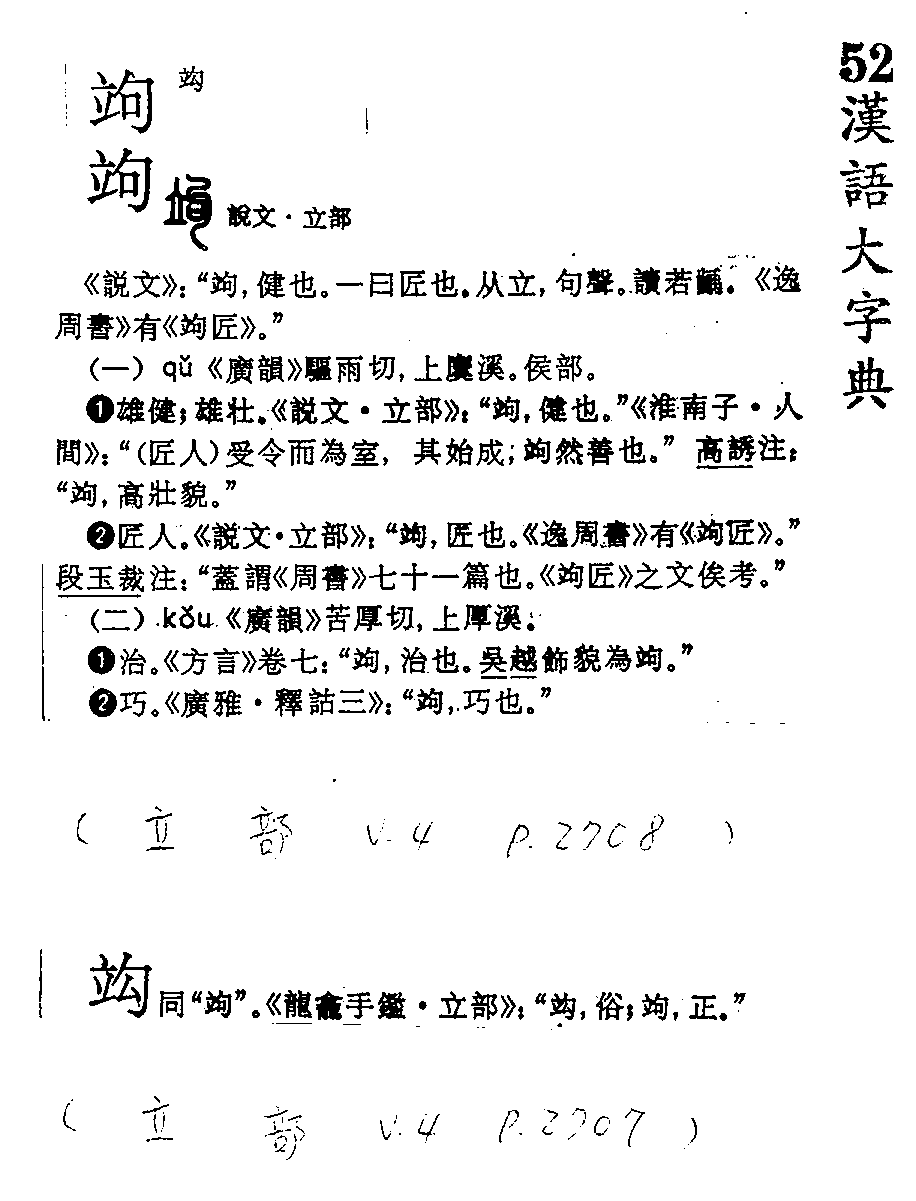 52漢語大字典
竘 竘
竘 説文·立部
《説文》：“竘，健也。一曰匠也。从立，句聲。讀若齲。《逸
周書》有《竘匠》。”
（一）qǔ《廣韻》驅雨切，上麌溪。侯部。
❶雄健；雄壯。《説文·立部》：“竘，健也。”《淮南子·人
間》：“（匠人）受令而為室，其始成；竘然善也。” 高誘注：
“竘，高壯貌。”
❷匠人。《説文·立部》：“竘，匠也。《逸周書》有《竘匠》。”
段玉裁注：“蓋謂《周書》七十一篇也。《竘匠》之文俟考。”
（二）kǒu《廣韻》苦厚切，上厚溪。
❶治。《方言》卷七：“竘，治也。吳越飾貌為竘。”
❷巧。《廣雅·釋詁三》：“竘，巧也。”
( 立 部 V.4 P.2708 )
同“竘”。《龍龕手鑑·立部》：“，俗；竘，正。”
( 立 部 V.4 P.2707 )